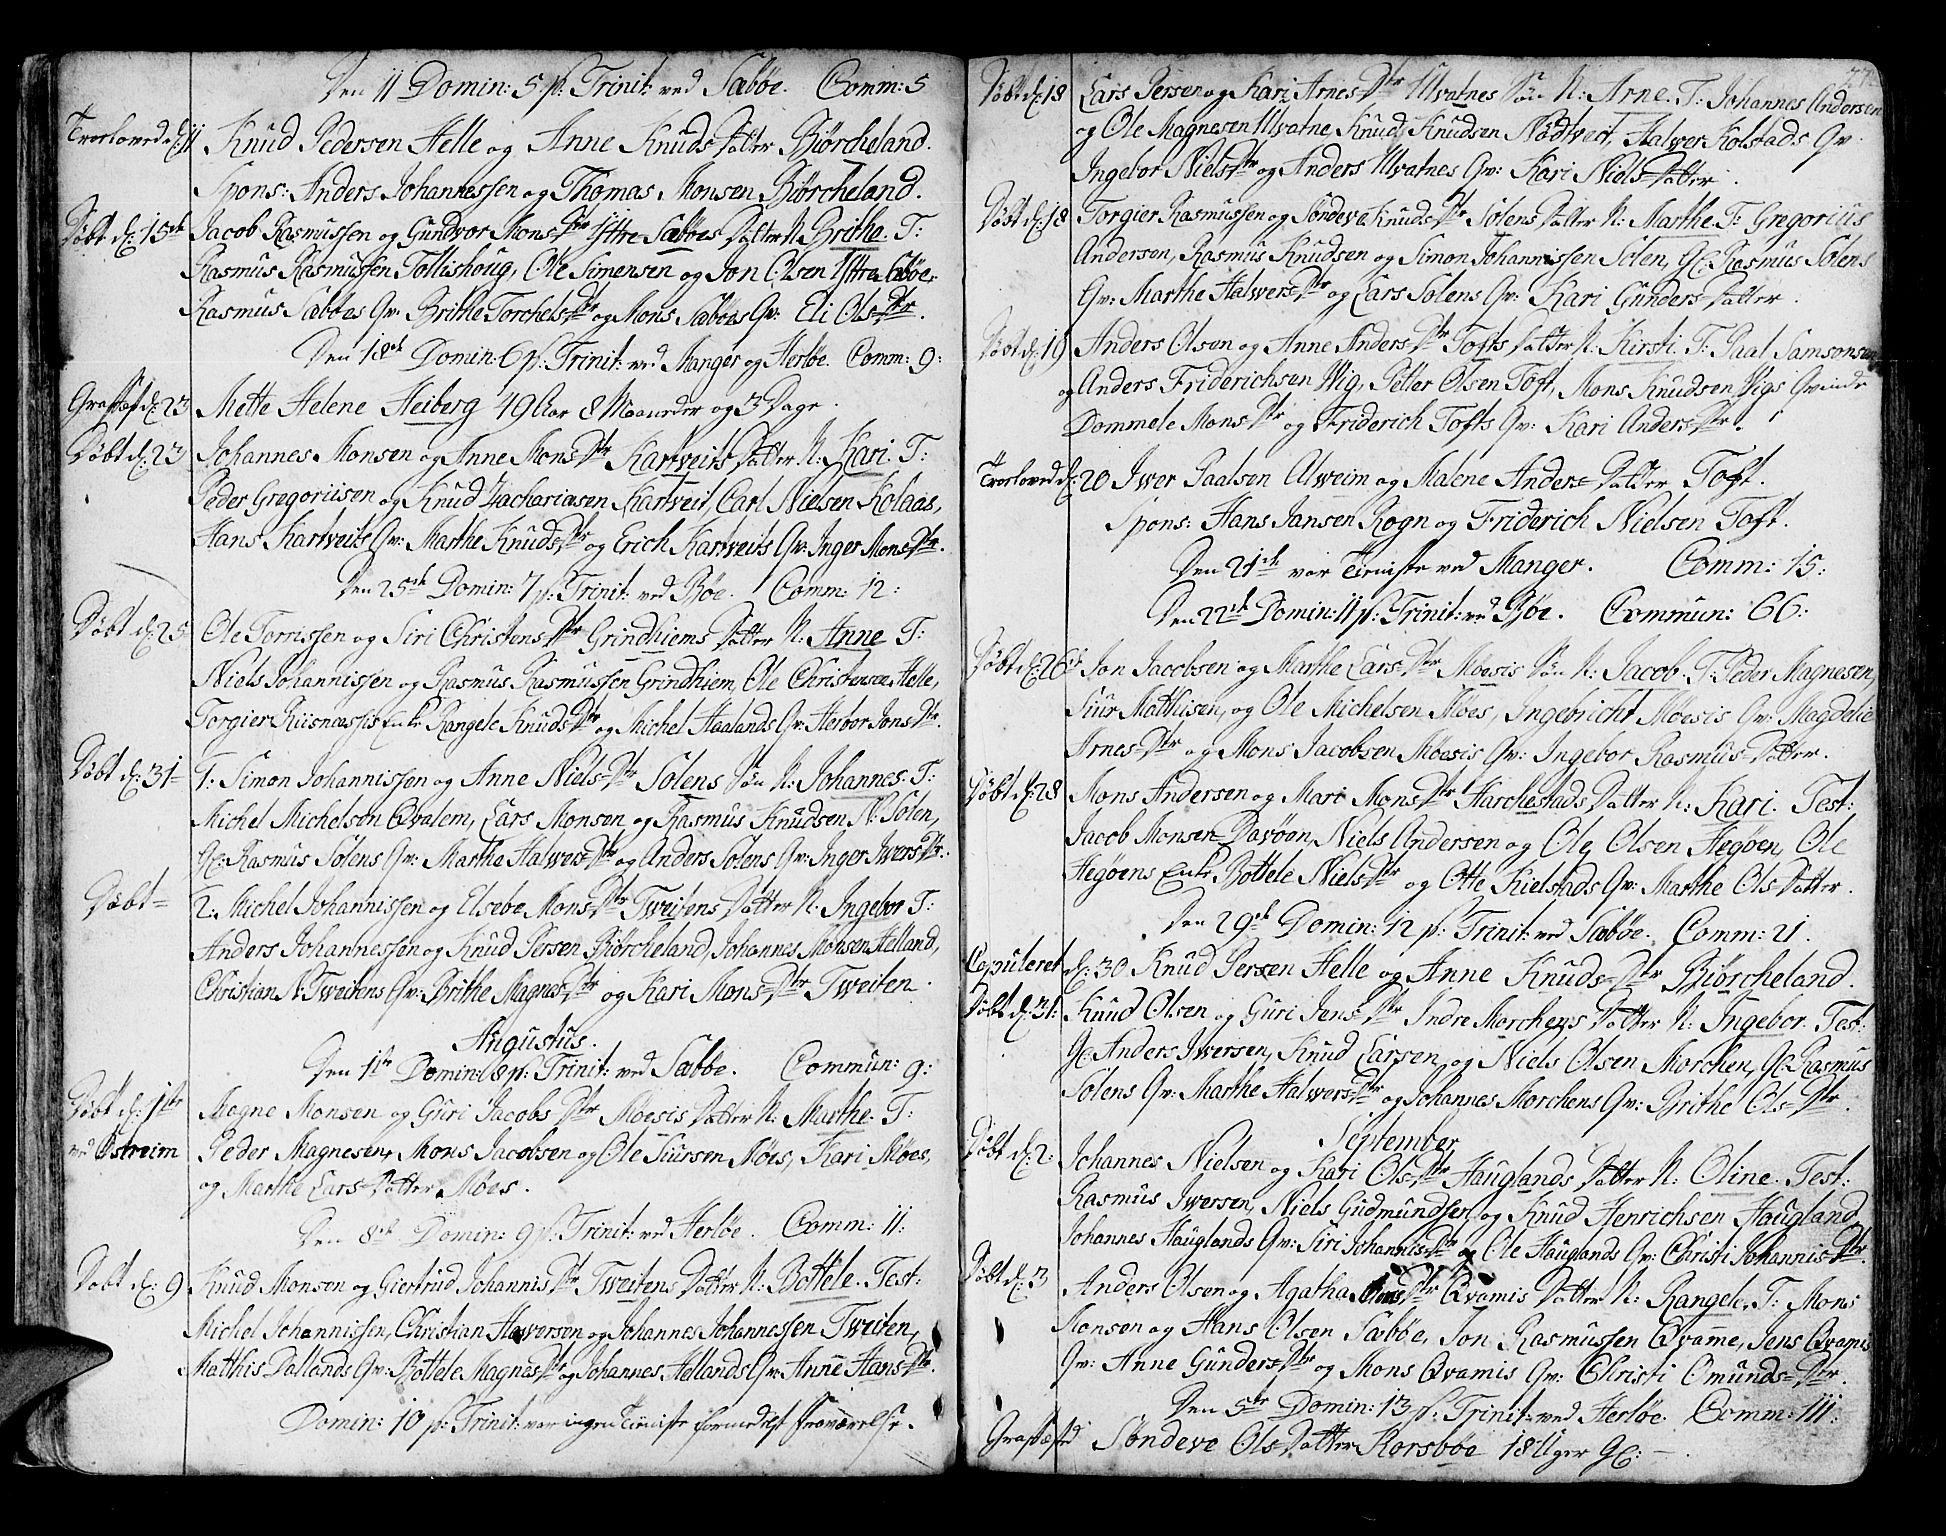 Den 11 Domin: 5 p: Trinit: ved Sæbøe. Comm: 5
Troeloved d: 11 Knud Pedersen Helle og Anne Knuds Datter Biörcheland.
Spons: Anders Johannessen og Thomas Monsen Biörcheland.
Döbt d: 15de Jacob Rasmussen og Gundvor Mons Dtr Ystre Sæbøes Datter N: Brithe. T:
Rasmus Rasmussen Tollishoug, Ole Simensen og Jon Olsen Ystre Sæbøe,
Rasmus Sæbøes Qv: Brithe Torchels Dtr og Mons Sæbøes Qv: Eli Ols Dtr.
Den 18de Domin: 6 p: Trinit: ved Manger og Herløe. Comm: 9:
Grafæst d: 23 Mette Helene Heiberg 19 Aar 8 Maaneder og 3 Dage.
Döbt d: 23 Johannes Monsen og Anne Mons Dtr Kartveits Datter N: Kari. T:
Peder Gregoriisen og Knud Zachariasen Kartveit, Carl Nielsen Kolaas,
Hans Kartveits Qv: Marthe Knuds Dtr og Erich Kartveits Qv: Inger Mons Dtr.
Den 25de Domin: 7 p: Trinit: ved Bøe. Comm: 12:
Döbt d: 25 Ole Torrissen og Siri Christens Dtr Grindhiems Datter N: Anne T:
Niels Johannissen og Rasmus Rasmussen Grindhiem, Ole Christensen Helle,
Torgier Riisnæssis Enke Rangele Knuds Dtr og Michel Haalands Qv: Herbor Jons Dtr.
Döbt d: 31 1: Simon Johannissen og Anne Niels Dtr Solens Sön N: Johannes: T:
Michel Michelsen Qvalem, Lars Monsen og Rasmus Knudsen N: Solen,
Gl: Rasmus Solens Qv: Marthe Halvers Dtr og Anders Solens Qv: Inger Ivers Dtr.
Döbt 2: Michel Johannissen og Elsebe Mons Dtr Tweitens Datter N: Ingebor T:
Anders Johannessen og Knud Persen Biörcheland, Johannes Monsen Helland,
Christian N: Tweitens Qv: Brithe Magnes Dtr og Kari Mons Dtr Tweiten.
Augustus.
Den 1ste Domin: 8 p: Trinit: ved Sæbøe. Commun: 9:
Döbt d: 1ste Magne Monsen og Guri Jacobs Dtr Moesis Datter N: Marthe: T:
ved Østreim Peder Magnesen, Mons Jacobsen og Ole Siursen Möes, Kari Möes,
og Marthe Lars Datter Möes.
Den 8de Domin: 9 p: Trinit: ved Herløe. Comm: 11:
Döbt d: 9 Knud Monsen og Giertrud Johannis Dtr Tweitens Datter N: Bottele. Test:
Michel Johannissen, Christian Halversen og Johannes Johannessen Tweiten,
Matthis Dallands Qv: Bottele Magnes Dtr og Johannes Hellands Qv: Anne Hans Dtr.
Domin: 10 p: Trinit: var ingen Tieniste formedelst fraværelse.
Döbt d: 18 Lars Persen og Kari Arnes Dtr Ulvatnes Sön N: Arne. T: Johannes Andersen
og Ole Magnesen Ulvatne, Knud Knudsen Nödtvert, Halver Kolstads Qv:
Ingebor Niels Dtr og Anders Ulvatnes Qv: Kari Niels Datter.
Döbt d: 18 Torgier Rasmussen og Söndeve Knuds Dtr Solens Datter N: Marthe T: Gregorius
Andersen, Rasmus Knudsen og Simon Johannissen Solen, Gl: Rasmus Solens
Qv: Marthe Halvers Dtr og Lars Solens Qv: Kari Gunders Datter.
Döbt d: 19 Anders Olsen og Anne Anders Dtr Tofts Datter N: Kirsti. T: Paal Samsonsen
og Anders Friderichsen Wig, Petter Olsen Toft, Mons Knudsen Vigs Qvinde
Dommele Mons Dtr og Friderich Tofts Qv: Kari Anders Dtr.
Troeloved d: 20 Iver Paalsen Alweim og Malene Anders Datter Toft.
Spons: Hans Jansen Rogn og Friderich Nielsen Toft.
Den 21de var Tieniste ved Manger. Comm: 15:
Den 22de Domin: 11 p: Trinit: ved Bøe. Commun: 66:
Döbt d: 26de Jon Jacobsen og Marthe Lars Dtr Moesis Sön N: Jacob. T: Peder Magnesen,
Siur Matthisen, og Ole Michelsen Möes, Ingebricht Möesis Qv: Magdelie
Arnes Dtr og Mons Jacobsen Möesis Qv: Ingebor Rasmus Datter.
Döbt d: 28 Mons Andersen og Mari Mons Dtr Harchestads Datter N: Kari. Test:
Jacob Monsen Davöen, Niels Andersen og Ole Olsen Hegöen, Ole
Hegöens Enke Bottele Niels Dtr og Otte Kielstads Qv: Marthe Ols Datter.
Den 29de Domin: 12 p: Trinit: ved Sæbøe. Comm: 21.
Copuleret d: 30 Knud Persen Helle og Anne Knuds Dtr Biörcheland.
Döbt d: 31: Knud Olsen og Guri Jens Dtr Indre Morchens Datter N: Ingebor. Test:
Gl: Anders Iversen, Knud Larsen og Niels Olsen Morchen, Gl: Rasmus
Solens Qv: Marthe Halvers Dtr og Johannes Morchens Qv: Brithe Ols Dtr.
September
Döbt d: 2: Johannes Nielsen og Kari Ols Dtr Hauglands Datter N: Oline. Test:
Rasmus Iversen, Niels Gudmundsen og Knud Henrichsen Haugland,
Johannes Hauglands Qv: Siri Johannis Dtr og Ole Hauglands Qv: Christi Johannis Dtr.
Döbt d: 3 Anders Olsen og Agatha Dtr Qvamis Datter N: Rangele. T: Mons
Monsen og Hans Olsen Sæbøe, Jon Rasmussen Qvamme, Jens Qvamis
Qv: Anne Gunders Dtr og Mons Qvamis Qv: Christi Omunds Dtr.
Den 5te Domin: 13 p: Trinit: ved Herløe. Comm: 111:
Grafæsted Söndeve Ols Datter Korsbøe 18 Uger Gl: